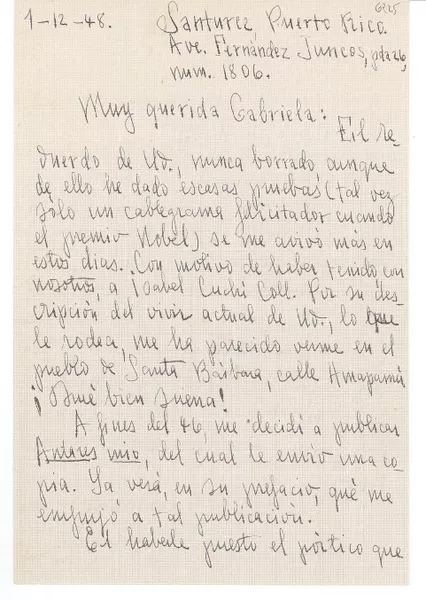 6225
1-12-48.
Santurce, Puerto Rico.
Ave. Fernández Juncos, pda 26,
num. 1806.
Muy querida Gabriela: El re-
cuerdo de Ud., nunca borrado aunque
de ello he dado escasas pruebas (tal vez
sólo un cablegrama felicitador cuando
el premio Nobel) se me avivó más en
estos días. Con motivo de haber tenido con
nosotros, a Isabel Cuchí Coll. Por su des-
cripción del vivir actual de Ud., lo que
le rodea, me ha parecido verme en el
pueblo de Santa Bárbara, calle Amapamú
¡Qué bien suena!
A fines del 46, me decidí a publicar
Antares mío, del cual le envío una co-
pia. Ya verá, en su prefacio, qué me
empujó a tal publicación.
El haberle puesto el pórtico que